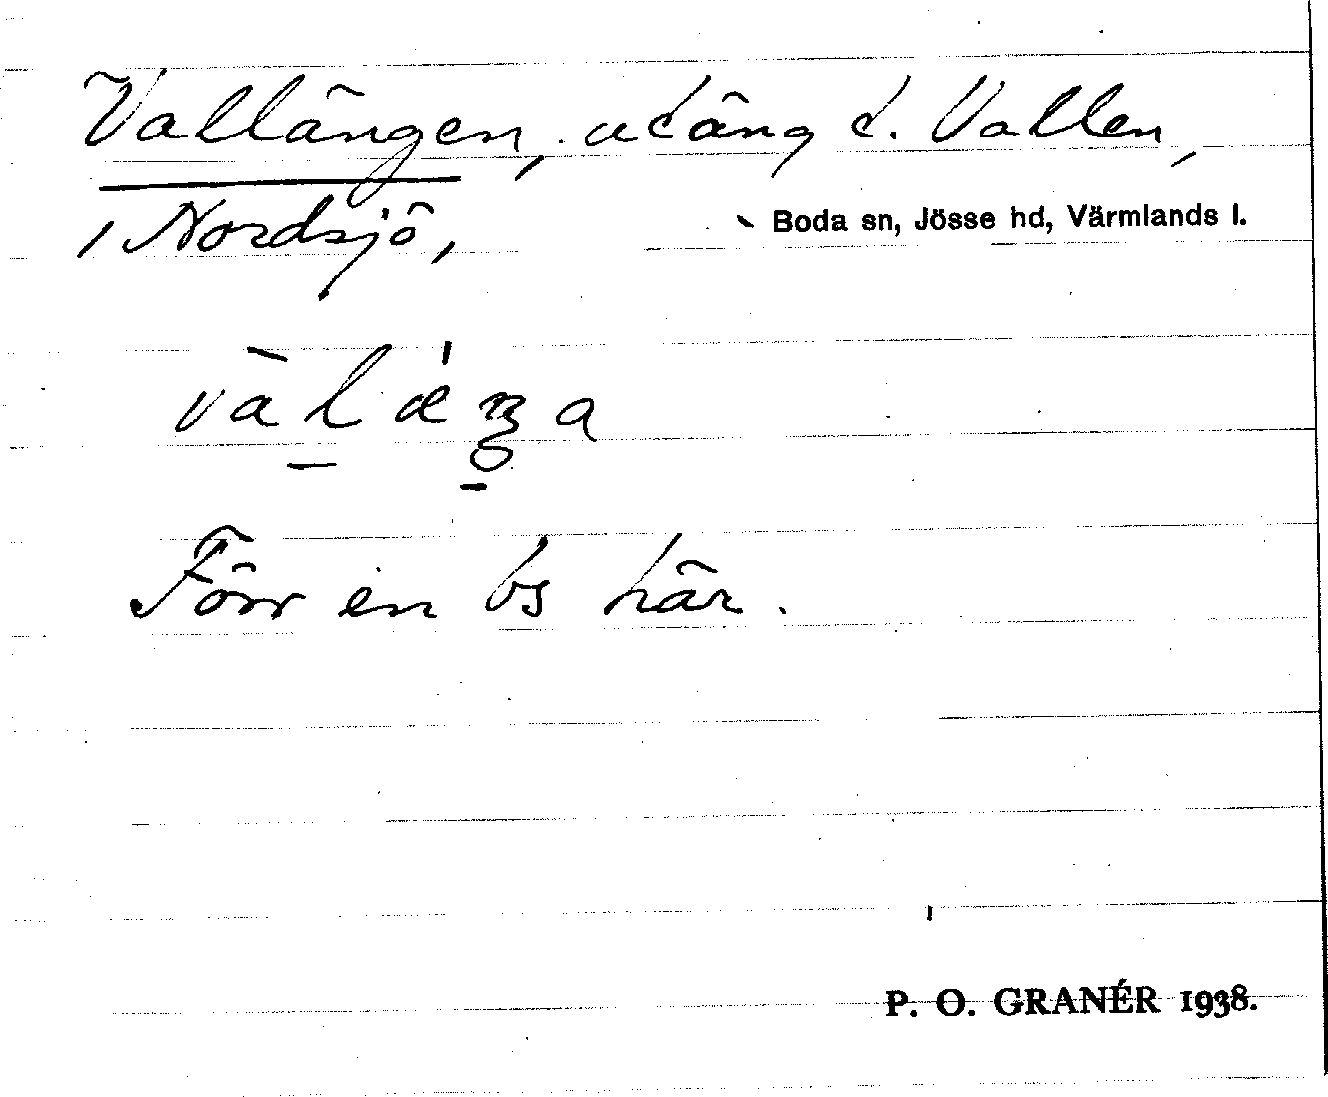 Vallängen, utäng t. Vallen,
i Nordsjö, Boda sn, Jösse hd, Värmlands l.
Förr en bs här.
P. O. GRANÉR 1938.